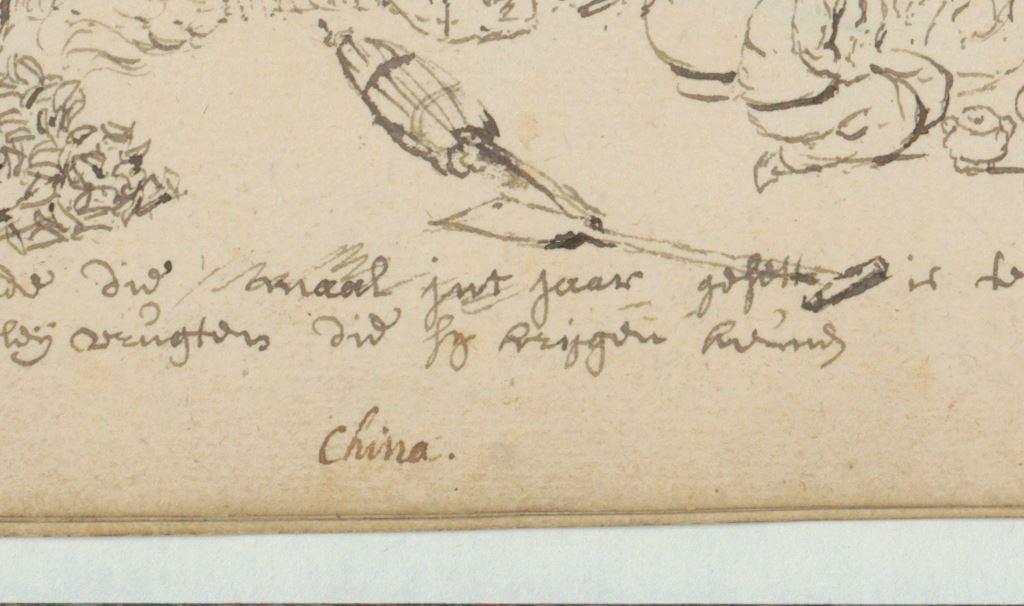 de die maal int jaar gesett is te
ley vrugten die sy krijgen kunnen
China.